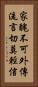 家醜不可外傳
流言切莫輕信